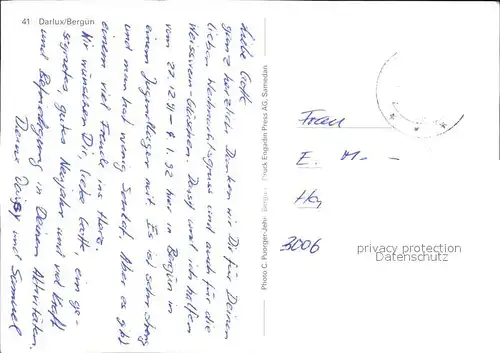 41 Darlux/Bergün
Liebe Gotte
ganz herzlich Danken wir Dir für Deinen
lieben Weihnachtsgruss und auch für die
Weisswein-Gläschen. Daisy und ich helfen
vom 27.12.91 - 4.1.92 hier in Bergün in
einem Jugendlager mit. Es ist sehr streng
und man hat wenig Schlaf. Aber es gibt
einem viel Freude ins Herz.
Wir wünschen Dir, liebe Gotte, ein ge-
segnetes gutes Neujahr und viel Kraft
und Befriedigung in Deinen Aktivitäten.
Deine Daisy und Samuel
Photo C. Puorger-Jehr Bergün Druck Engadin Press AG, Samedan
Frau
E. M. -
3006
privacy protection
Datenschutz